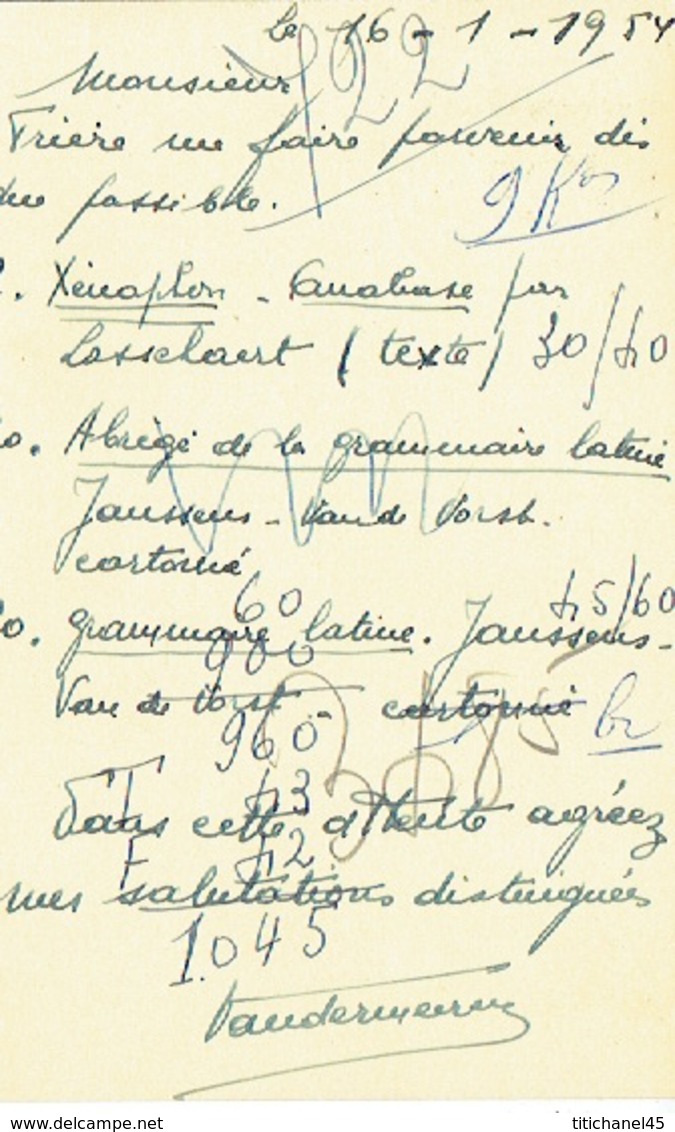 le 16-1-1954
Monsieur
Prière me faire parvenir dès
que possible.
9 Kos
. Xénophon - Anabase par
Lasschaert (texte) 30/40
20. Abrégé de la grammaire latine
Janssens - Van de Vorst.
cartonné
60 45/60
30. grammaire latine. Janssens -
900
Van de Vorst - cartonné br
960
T 43
Dans cette attente agréez
F 42
mes salutations distinguées
1.045
Vandermeeren
www.delcampe.net titichanel45